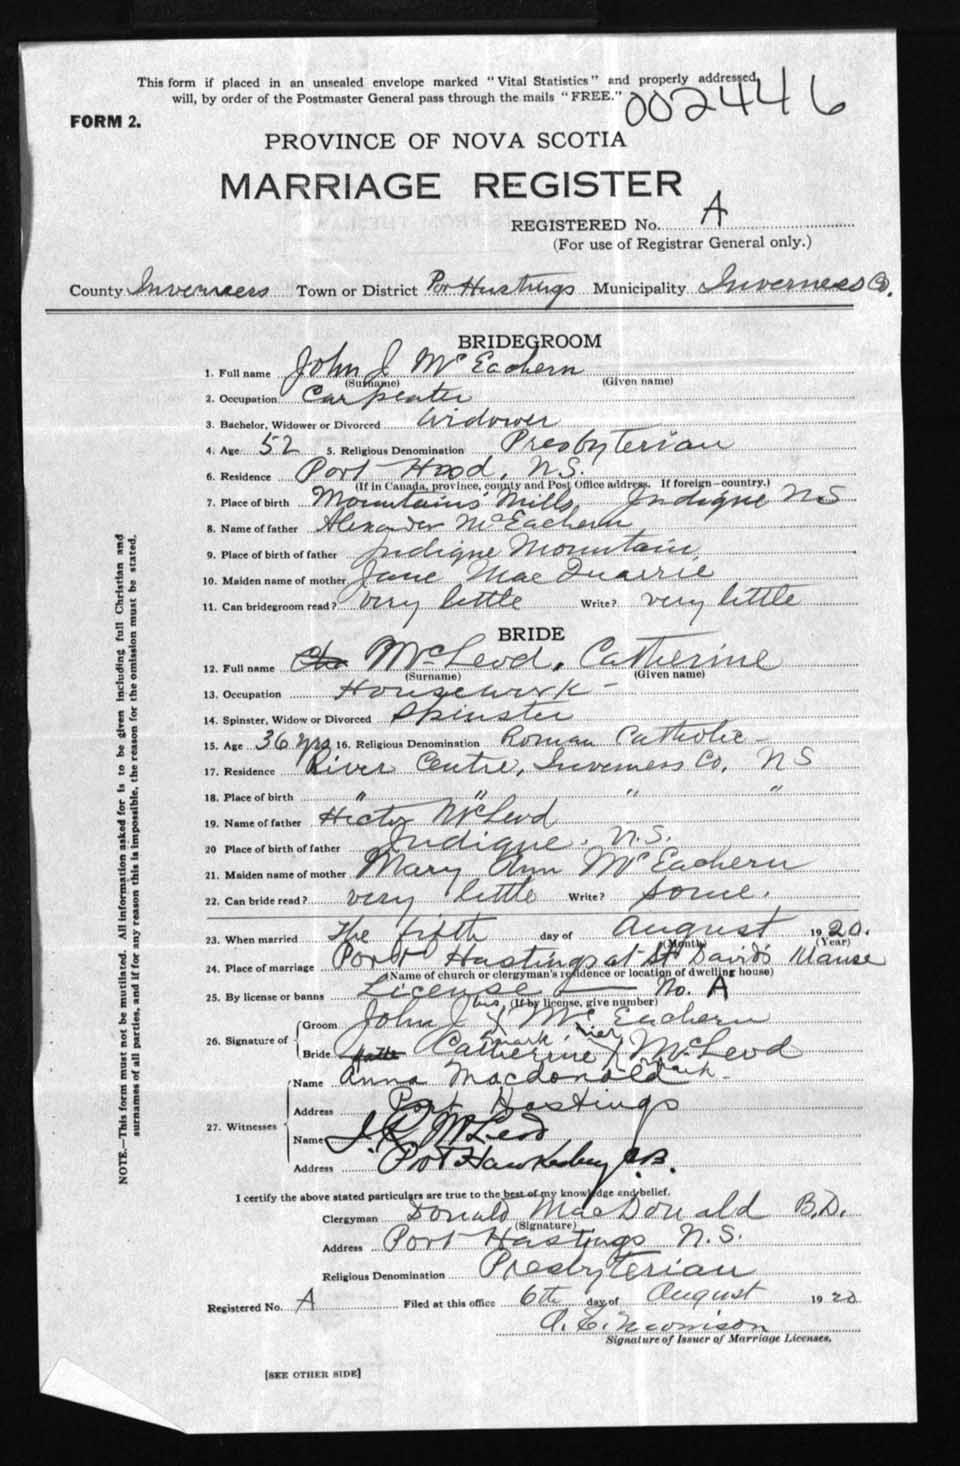 This form if placed in an unsealed envelope marked "Vital Statistics" and properly addressed,
will, by order of the Postmaster General pass through the mails "FREE."
002446
FORM 2.
PROVINCE OF NOVA SCOTIA
MARRIAGE REGISTER
REGISTERED No. A
(For use of Registrar General only.)
County Inverness Town or District Port Hastings Municipality Inverness Co.
BRIDEGROOM
1. Full name John J McEachern
(Surname) (Given name)
2. Occupation Carpenter
3. Bachelor, Widower or Divorced Widower
4. Age 52 5. Religious Denomination Presbyterian
6. Residence Port Hood, N.S.
(If in Canada, province, county and Post Office address. If foreign—country.)
7. Place of birth Mountains Mills, Judique N S
8. Name of father Alexander McEachern
9. Place of birth of father Judique Mountain
10. Maiden name of mother Jane MacQuarrie
11. Can bridegroom read? very little Write? very little
BRIDE
12. Full name McLeod, Catherine
(Surname) (Given name)
13. Occupation Housework -
14. Spinster, Widow or Divorced Spinster
15. Age 36 yrs 16. Religious Denomination Roman Catholic -
17. Residence River Centre, Inverness Co, N S
18. Place of birth " " " "
19. Name of father Hector McLeod
20 Place of birth of father Judique. N.S.
21. Maiden name of mother Mary Ann McEachern
22. Can bride read? very little Write? Some.
23. When married The fifth day of August 1920.
(Month) (Year)
24. Place of marriage Port Hastings at St David's Manse
(Name of church or clergyman's residence or location of dwelling house)
25. By license or banns License — No. A
(If by license, give number)
his
26. Signature of Groom John J X McEachern
mark. her
Bride Catherine X McLeod
mark -
27. Witnesses
Name Anna Macdonald
Address Port Hastings
Name J. R. McLeod
Address Port Hawkesbury C.B.
I certify the above stated particulars are true to the best of my knowledge and belief.
Clergyman Donald MacDonald B.D.
(Signature)
Address Port Hastings N.S.
Religious Denomination Presbyterian
Registered No. A Filed at this office 6th day of August 1920
Signature of Issuer of Marriage Licenses.
[SEE OTHER SIDE]
NOTE.—This form must not be mutilated. All information asked for is to be given including full Christian and
surnames of all parties, and if for any reason this is impossible, the reason for the omission must be stated.